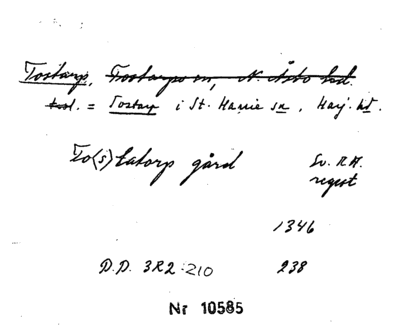 Tostarp, Tostarps sn, N. Åsbo hd.
hd. = Tostarp i St. Harrie sn, Harj. hd.
To(s)tatorp gård Sv. R.A.
regest
1346
D.D. 3R2:210 238
Nr 10585